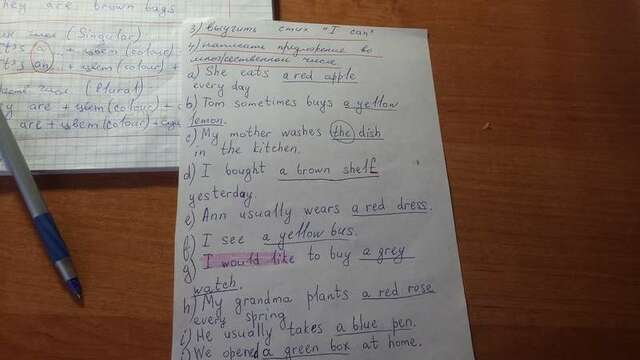 they are brown bags
(Singular)
+ цвет (colour) +
an... + цвет (colour) +
(Plural)
are + цвет (colour) +
are + цвет (colour) +
3) выучить стих "I can"
4) написать предложение во
множественном числе
a) She eats a red apple
every day
b) Tom sometimes buys a yellow
lemon.
c) My mother washes the dish
in the kitchen.
d) I bought a brown shelf
yesterday.
e) Ann usually wears a red dress.
f) I see a yellow bus.
g) I would like to buy a grey
watch.
h) My grandma plants a red rose
every spring
i) He usually takes a blue pen.
j) We opened a green box at home.